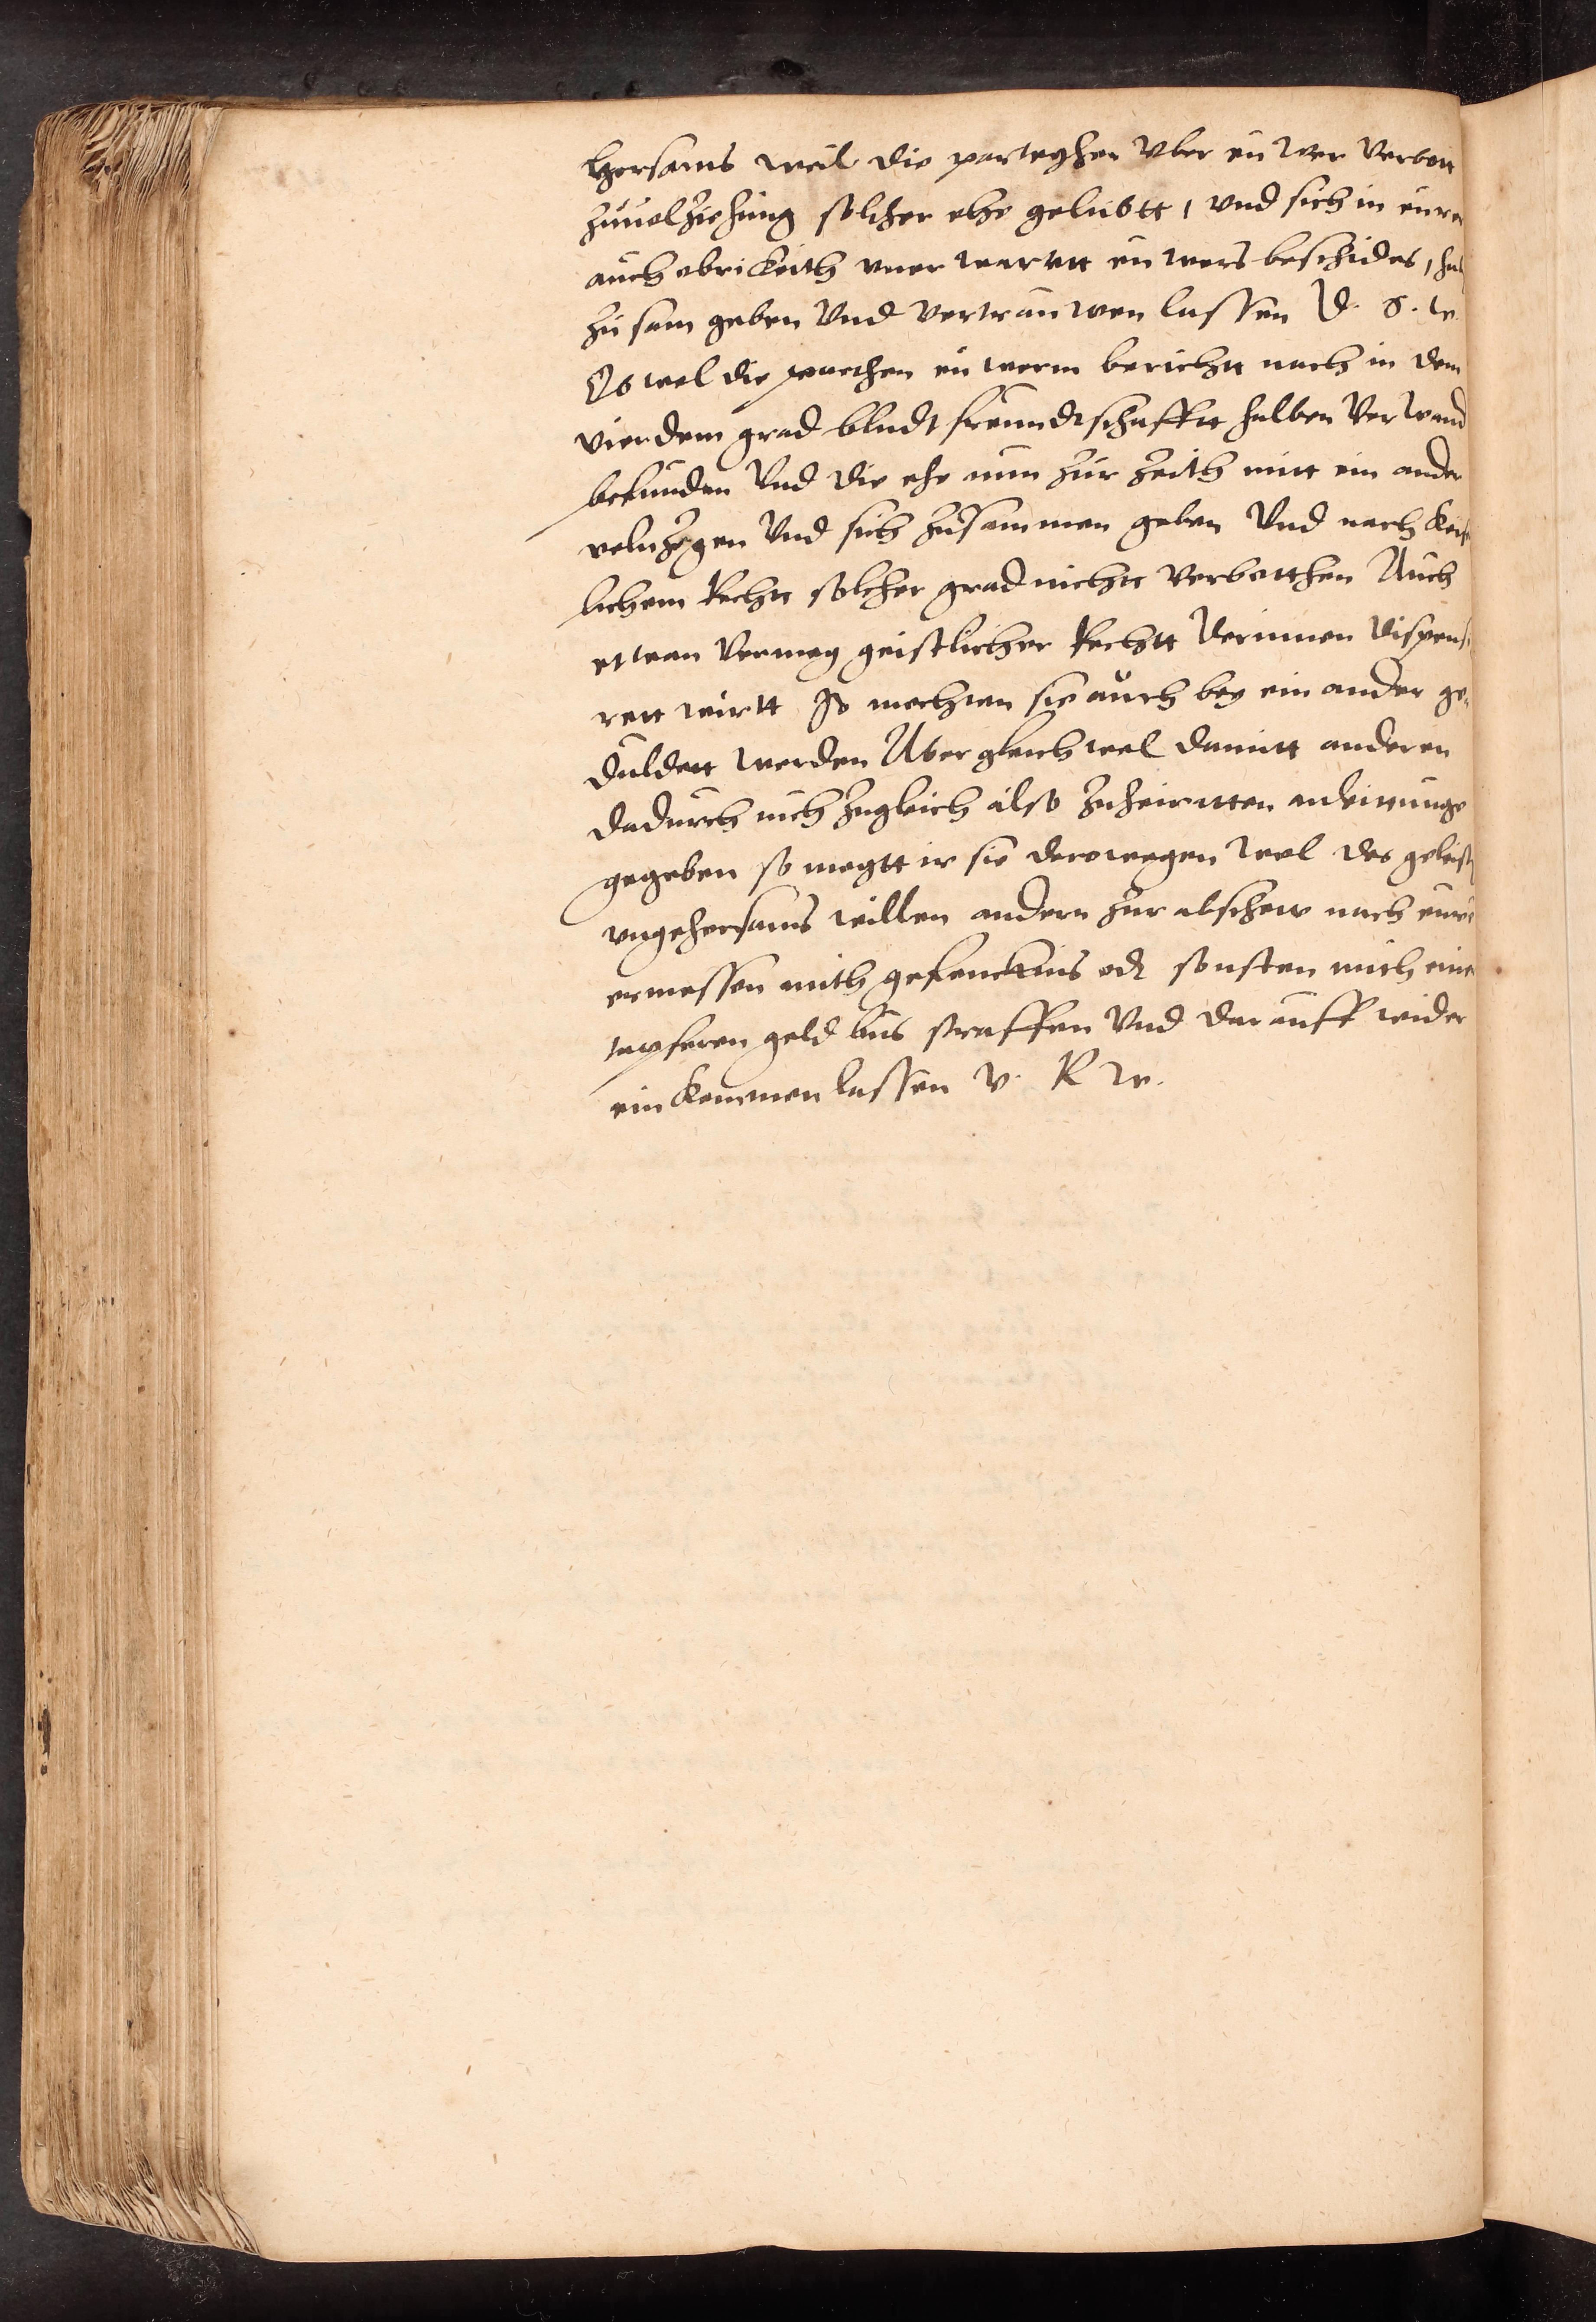 horsams weil die parteyhen vber eu wer verbott
zuuolziehung solcher ehe gelubtt, vnd sich in eurer
auch obrikeith vner wartett eu wers beschides, ha
zu sam geben vnd vertrau wen lassen V. S. w.
Ob wol die parthen eu werm berichtt nach in dem
vierdem grad bludt freundtschafftt halben verwand
befunden vnd die ehe nun zur zeith mitt ein ander
volnzogen vnd sich zusammen geben vnd nach keis
lichem Rechtt solcher grad nichtt verbotthen Auch
ettwan vermog geistlicher Rechtt derinnen dispens
rett wirtt So mochten sie auch bey ein ander ge„
duldett werden Aber gleich wol damitt anderen
dadurch nich zugleich also zuheiratten anleittunge
gegeben so mogtt ir sie derowegen wol des geleist
vngehorsams willen andern zur abschew nach eure
ermessen mith gefencknis odr sonsten mith eine
tapferen geld bus straffen vnd darauff wider
ein kommen lassen V. R w.